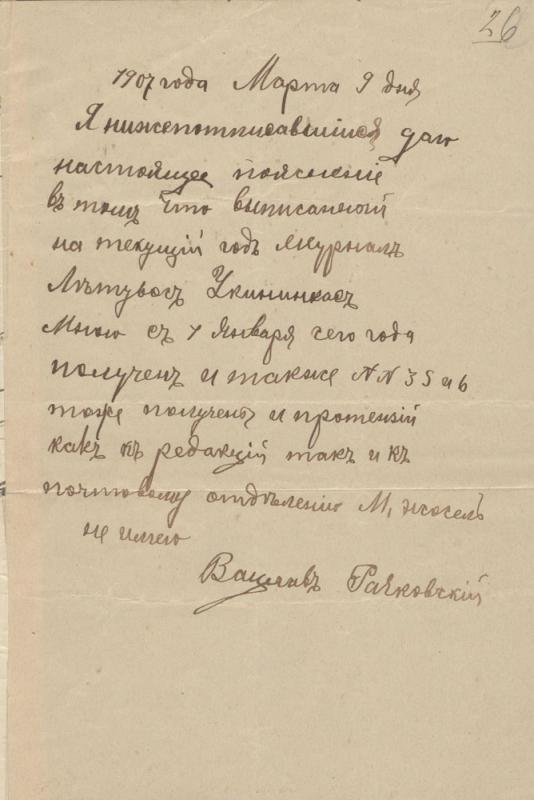 26
1907 года Марта 9 дня
Я нижепотписавшийся даю
настоящее пояснение
въ томъ что выписанный
на текущий годъ журналъ
Летувосъ Укининкасъ
мною съ 1 Января сего года
полученъ и также NN 3 5 и 6
тоже получены и протензий
какъ къ редакций такъ и къ
почтовому отделению М,
не имею
Вацлавъ Рачковский